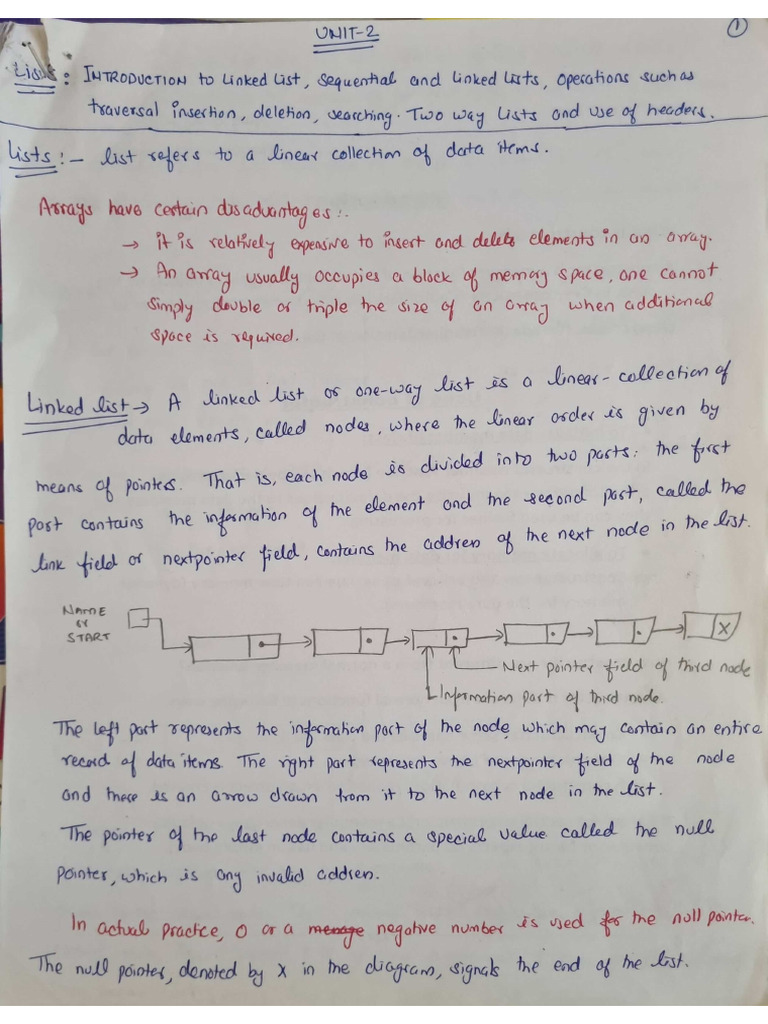 UNIT-2
1
Lists: INTRODUCTION to Linked List, Sequential and Linked Lists, operations such as
traversal insertion, deletion, searching. Two way Lists and use of headers.
Lists:- List refers to a linear collection of data items.
Arrays have certain disadvantages:.
→ It is relatively expensive to insert and delete elements in an array.
→ An array usually occupies a block of memory space, one cannot
simply double or triple the size of an array when additional
space is required.
Linked list → A linked list or one-way list is a linear-collection of
data elements, called nodes, where the linear order is given by
means of pointers. That is, each node is divided into two parts: the first
part contains the information of the element and the second part, called the
link field or nextpointer field, contains the address of the next node in the list.
NAME
or
START
X
Next pointer field of third node
Information part of third node.
The left part represents the information part of the node, which may contain an entire
record of data items. The right part represents the nextpointer field of the node
and there is an arrow drawn from it to the next node in the list.
The pointer of the last node contains a special value called the null
pointer, which is any invalid address.
In actual practice, 0 or a negative number is used for the null pointer.
The null pointer, denoted by X in the diagram, signals the end of the list.